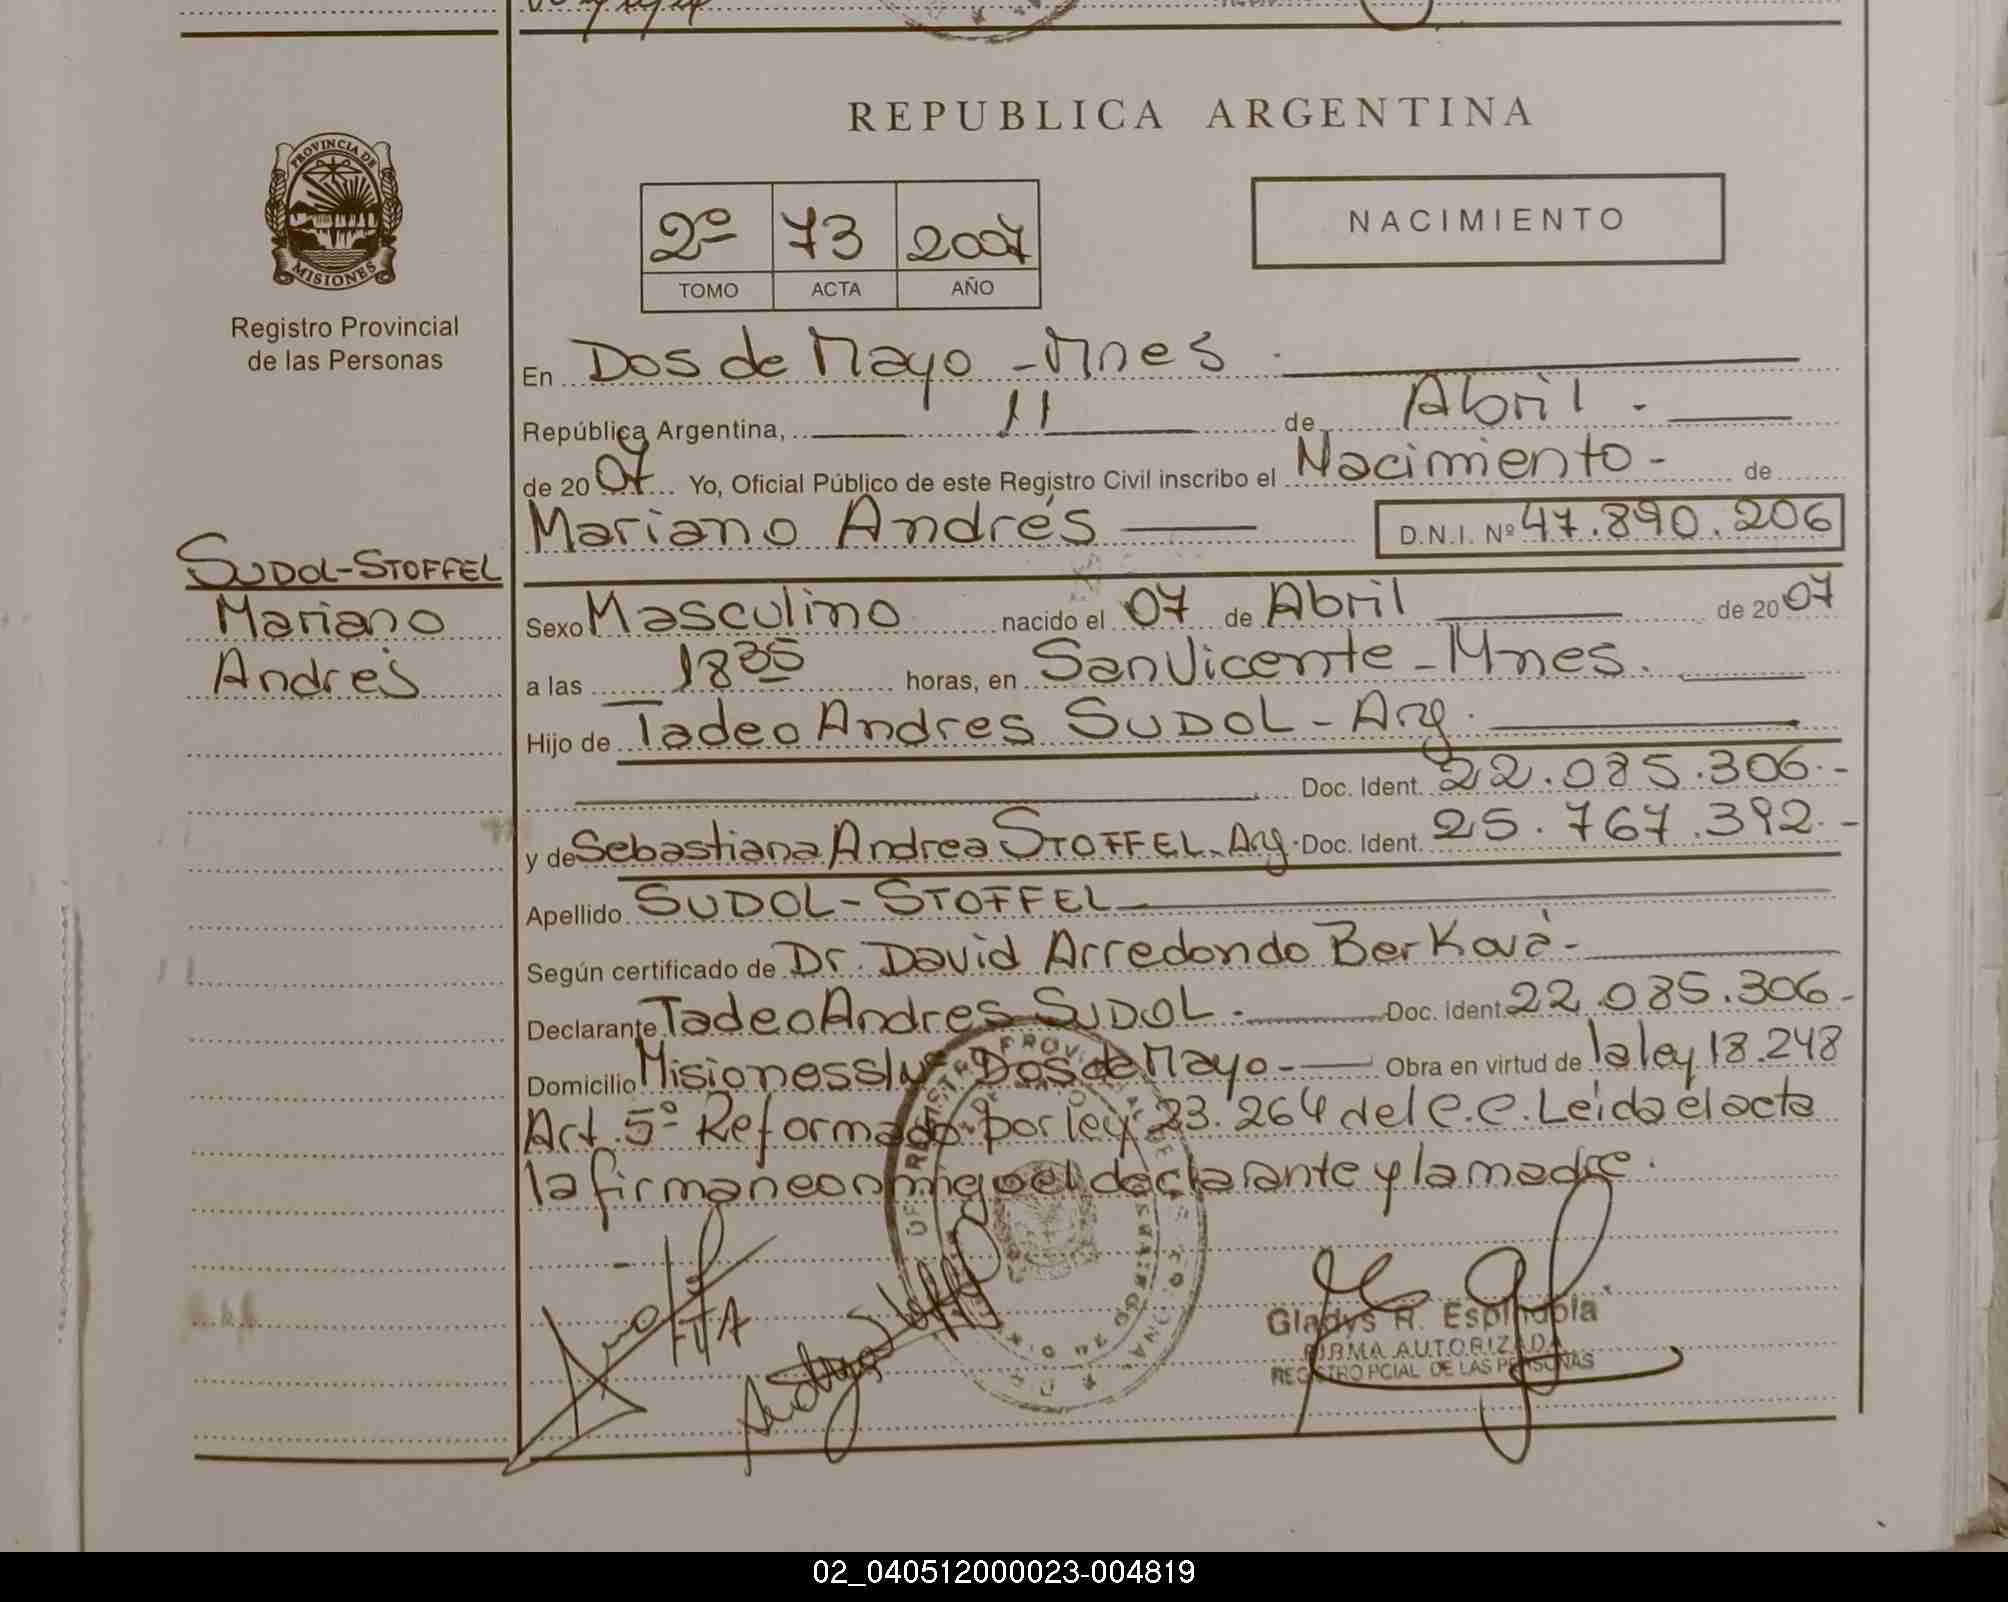 REPUBLICA ARGENTINA
PROVINCIA DE
MISIONES
Registro Provincial
de las Personas
2º 73 2007
TOMO ACTA AÑO
NACIMIENTO
En Dos de Mayo - Mnes
República Argentina, 11 de Abril.-
de 20 07 Yo, Oficial Público de este Registro Civil inscribo el Nacimiento - de
Mariano Andrés D.N.I. Nº 47.890.206
SUDOL-STOFFEL
Mariano
Andrés
Sexo Masculino nacido el 07 de Abril de 20 07
a las 1835 horas, en San Vicente - Mnes.
Hijo de Tadeo Andres SUDOL - Arg.
Doc. Ident. 22.085.306.-
y de Sebastiana Andrea STOFFEL. Arg. Doc. Ident. 25.767.392.-
Apellido SUDOL - STOFFEL
Según certificado de Dr. David Arredondo
Declarante Tadeo Andres SUDOL.- Doc. Ident. 22.085.306.-
Domicilio Misiones s/nº Dos de Mayo.- Obra en virtud de la ley 18.248
Art. 5º Reformado por ley 23.264 del C.C. Leida el acta
la firman conmigo el declarante y la madre.
Gladys R. Espindola
FIRMA AUTORIZADA
REGISTRO PCIAL DE LAS PERSONAS
02_040512000023-004819